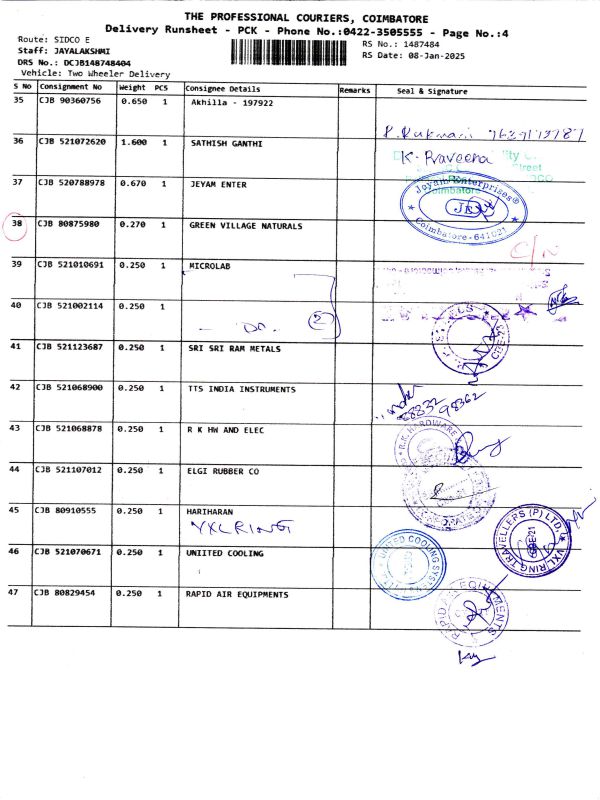 THE PROFESSIONAL COURIERS, COIMBATORE
Delivery Runsheet - PCK - Phone No.:0422-3505555 - Page No.:4
Route: SIDCO E
RS No.: 1487484
Staff: JAYALAKSHMI
RS Date: 08-Jan-2025
DRS No.: DCJB148748404
Vehicle: Two Wheeler Delivery
S No Consignment No Weight PCS Consignee Details Remarks Seal & Signature
35 CJB 90360756 0.650 1 Akhilla - 197922
P. Rukmani
36 CJB 521072620 1.600 1 SATHISH GANTHI
K. Praveena
37 CJB 520788978 0.670 1 JEYAM ENTER
Joyam Enterprises®
JE
Coimbatore-641021
38 CJB 80875980 0.270 1 GREEN VILLAGE NATURALS
C/N
39 CJB 521010691 0.250 1 MICROLAB
40 CJB 521002114 0.250 1
— Do — 2
41 CJB 521123687 0.250 1 SRI SRI RAM METALS
42 CJB 521068900 0.250 1 TTS INDIA INSTRUMENTS
98362
43 CJB 521068878 0.250 1 R K HW AND ELEC
R.K HARDWARE
44 CJB 521107012 0.250 1 ELGI RUBBER CO
45 CJB 80910555 0.250 1 HARIHARAN
VXLRING
VXL RING TRAVELLERS (P) LTD,
46 CJB 521070671 0.250 1 UNIITED COOLING
UNITED COOLING SYSTEM
47 CJB 80829454 0.250 1 RAPID AIR EQUIPMENTS
RAPID AIR EQUIPMENTS